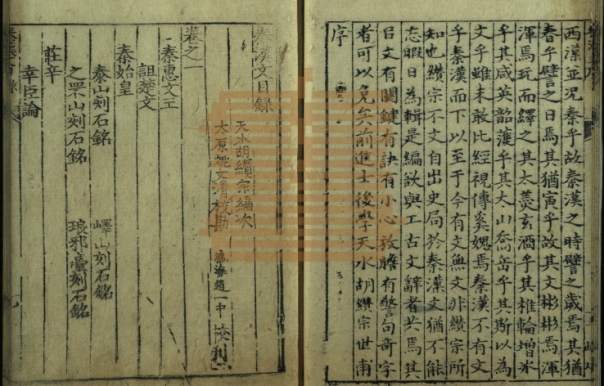 西漢並況秦乎故秦漢之時譬之歲焉其猶
春乎譬之日焉其猶寅乎故其文彬彬焉渾
渾焉玩而繹之其太羹玄酒乎其椎輪增冰
乎其咸英韶濩乎其大山喬岳乎其斯以為
文乎雖未敢比經視傳奚媿焉秦漢不有文
乎秦漢而下以至于今有文無文非纘宗所
知也纘宗不文自出史局於秦漢文猶不能
忘暇日為輯是編欲與工古文辭者共焉其
曰文有關鍵有訣有小心放膽有警句奇字
者可以免矣前進士後學天水胡纘宗世甫
序
秦漢文目錄
天水胡纘宗編次
太原姚文清校勘
趙一中校刊
卷之一
秦惠文王
詛楚文
秦始皇
泰山刻石銘
嶧山刻石銘
之罘山刻石銘
琅邪臺刻石銘
莊辛
幸臣論